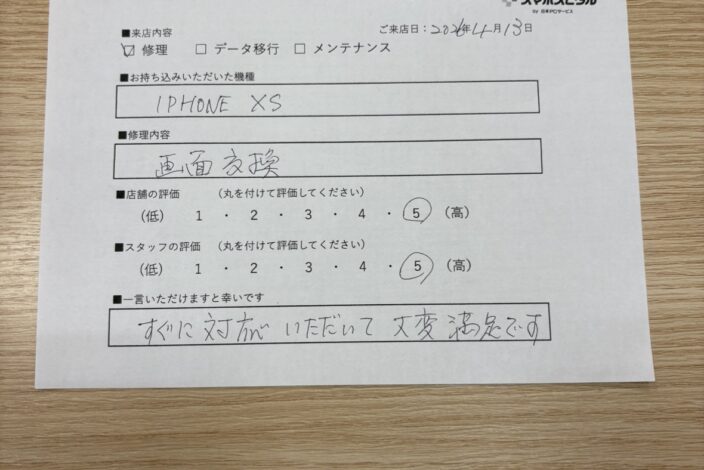 スマホスピタル
by 日本PCサービス
■来店内容
ご来店日：2026年4月13日
☑ 修理 □ データ移行 □ メンテナンス
■お持ち込みいただいた機種
IPHONE XS
■修理内容
画面交換
■店舗の評価 （丸を付けて評価してください）
（低） 1 ・ 2 ・ 3 ・ 4 ・ 5 （高）
■スタッフの評価 （丸を付けて評価してください）
（低） 1 ・ 2 ・ 3 ・ 4 ・ 5 （高）
■一言いただけますと幸いです
すぐに対応いただいて大変満足です